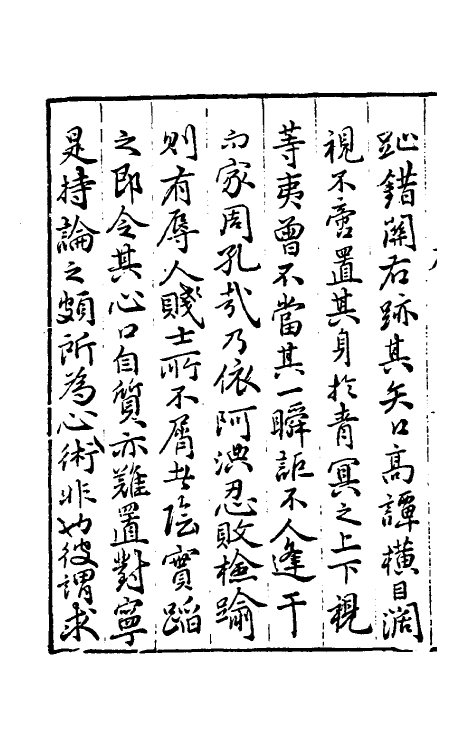 趾錯關右跡其矢口高譚橫目濶
視不啻置其身於青冥之上下視
等夷曾不當其一瞬詎不人逢干
而家周孔哉乃依阿淟忍敗檢踰
則有辱人賤士所不屑者陰實蹈
之即令其心口自質亦難置對寧
是持論之頗所為心術非也彼謂求